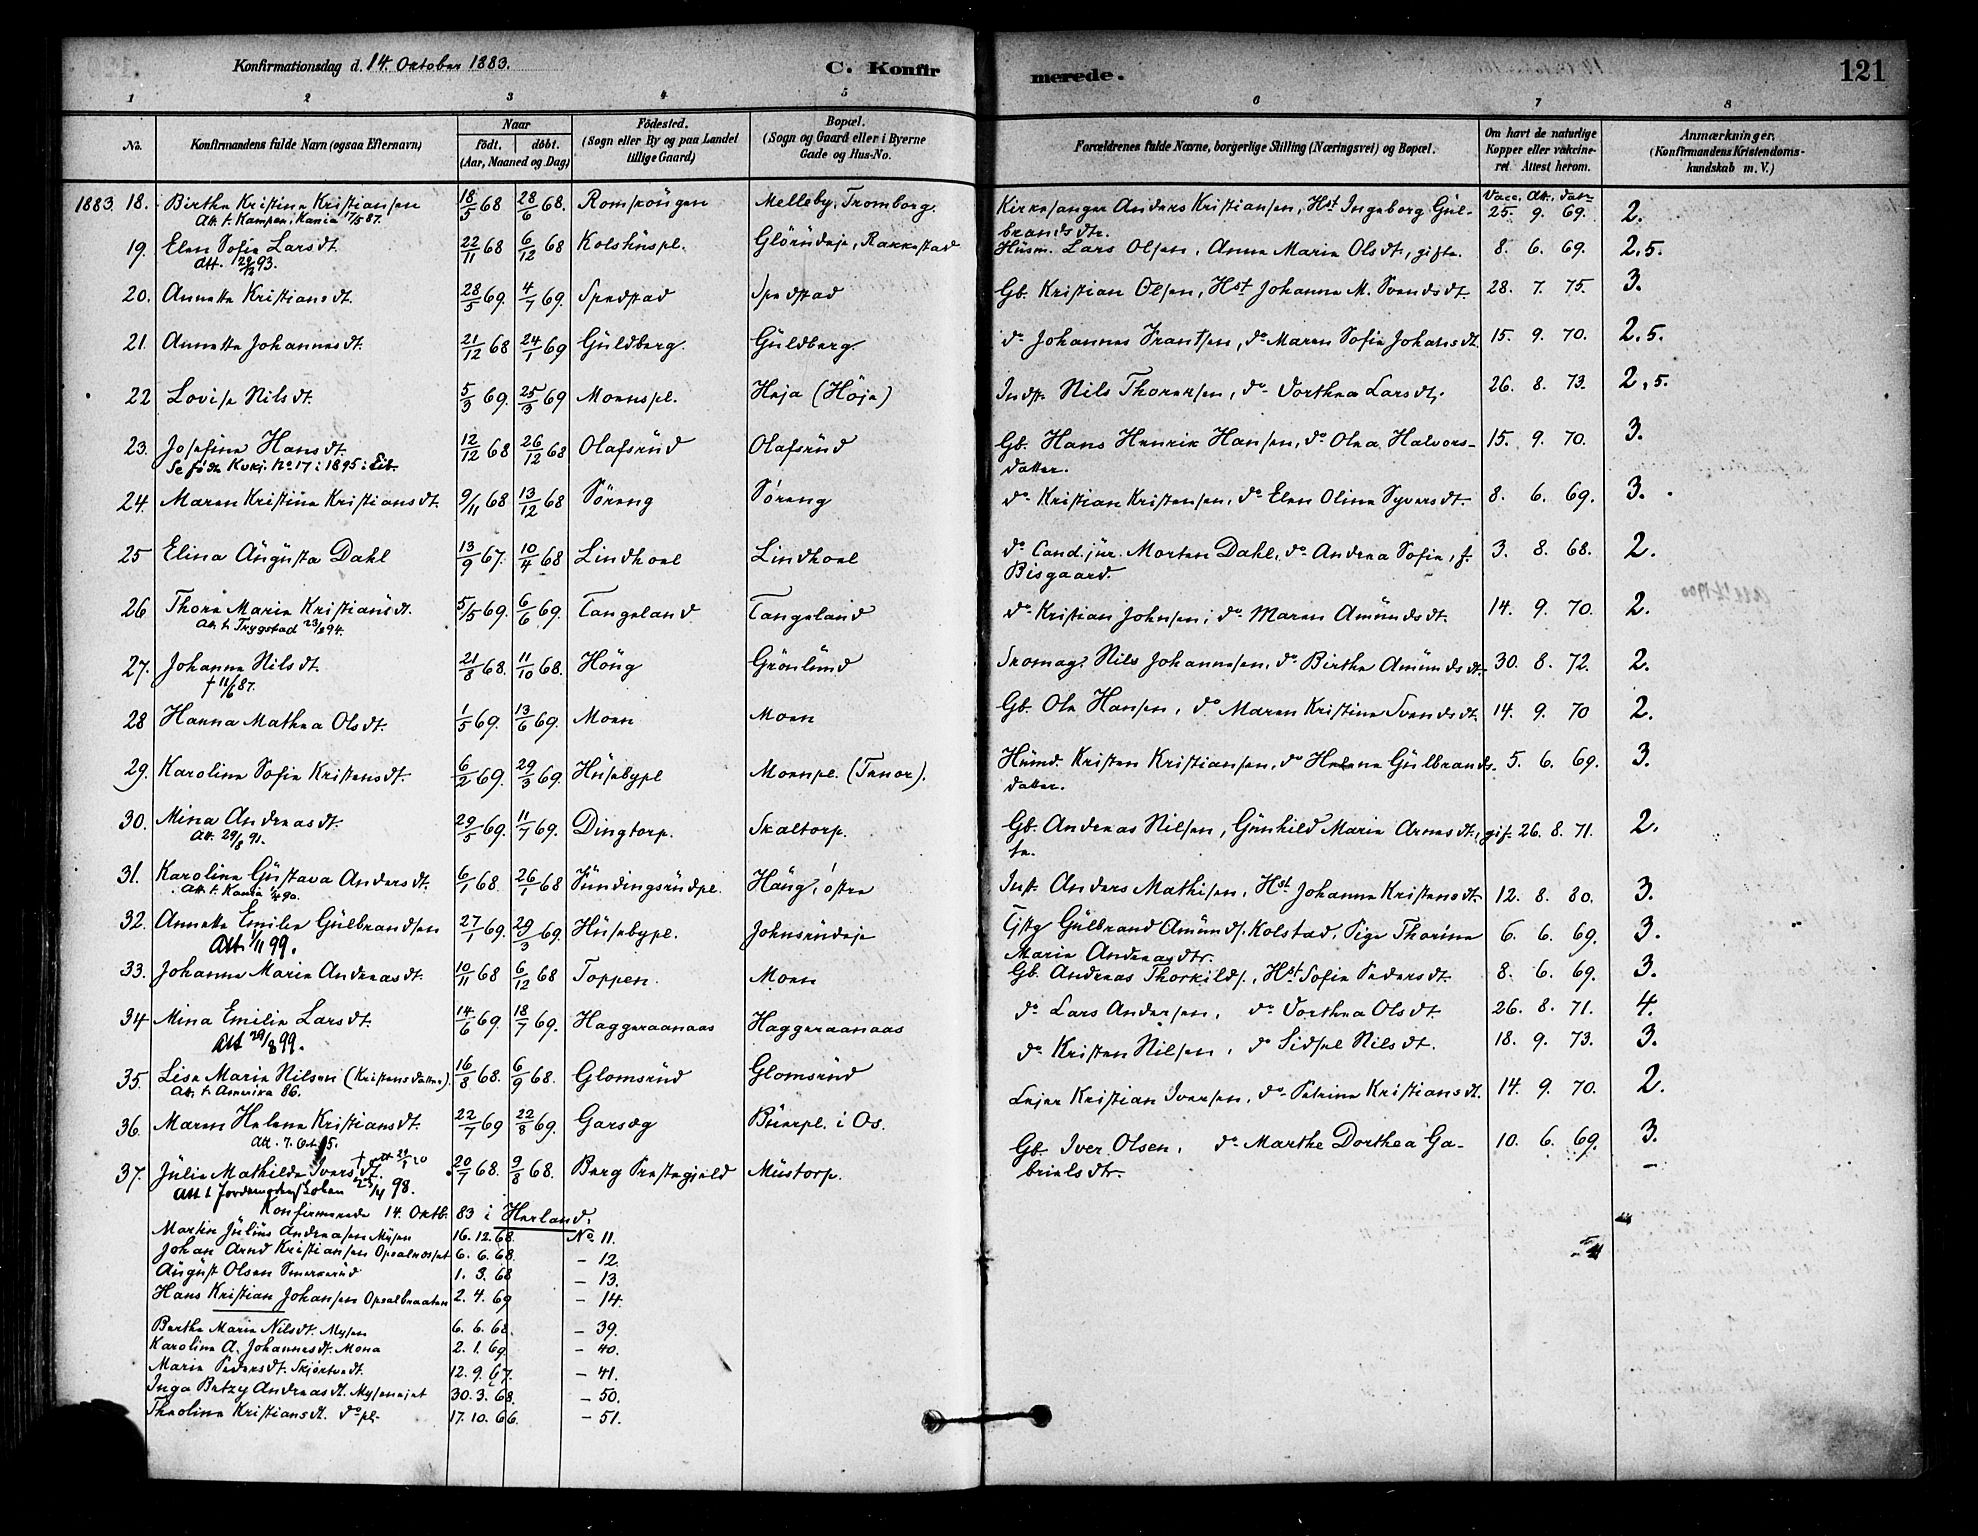 Konfirmationsdag d. 14. Oktober 1883.
C. Konfir
merede.
121
1 2 3 4 5 6 7 8
No. Konfirmandens fulde Navn (ogsaa Efternavn) Naar født. døbt. (Aar, Maaned og Dag) Fødested. (Sogn eller By og paa Landet tillige Gaard) Bopæl. (Sogn og Gaard eller i Byerne Gade og Hus-No. Forældrenes fulde Navne, borgerlige Stilling (Næringsvei) og Bopæl. Om havt de naturlige Kopper eller vakcineret Attest herom. Anmærkninger. (Konfirmandens Kristendomskundskab m. V.)
1883 18. Birthe Kristine Kristiansen 18/5 68 28/6 68. Romskougen Melleby, Tromborg. Kirkesanger Anders Kristiansen, Hst Ingeborg Gul- Vacc. Att. dat. 25. 9. 69. 2.
Att. t. Kampen i Kania 17/5 87. brandsdtr.
19. Elen Sofie Larsdt. 22/11 68 6/12 68 Kolshuspl. Glörudeje, Rakkestad Husm. Lars Olsen, Anne Marie Olsdt., gifte. 8. 6. 69. 2,5.
20. Annette Kristiansdt. 28/5 69. 4/7 69. Spedstad Spedstad Gb. Kristian Olsen, Hst Johanne M. Svendsdt. 28. 7. 75. 3.
21. Annette Johannesdt. 21/12 68 24/1 69 Guldberg. Guldberg. do Johannes Frantsen, do Maren Sofie Johansdt. 15. 9. 70. 2,5.
22 Lovise Nilsdt. 5/3 69. 25/3 69 Moenspl. Heja (Höje) Indst. Nils Thorersen, do Dorthea Larsdt. 26. 8. 73. 2,5.
23. Josefine Hansdt. 12/12 68 26/12 68 Olafsrud Olafsrud Gb. Hans Henrik Hansen, do Olea Halvors- 15. 9. 70. 3.
Se fødte Kvkj. No 17 i 1895 i Eib. datter.
24. Maren Kristine Kristiansdt. 9/11 68 13/12 68 Söreng Söreng do Kristian Kristensen, do Elen Oline Syversdt. 8. 6. 69. 3.
25 Elina Augusta Dahl 13/9 67. 10/4 68 Lindhoel Lindhoel do Cand. jur. Morten Dahl, do Andrea Sofie, f. 3. 8. 68. 2.
Bisgaard.
26 Thora Marie Kristiansdt. 5/5 69. 6/6 69. Tangeland Tangeland do Kristian Johnsen, do Maren Amundsdt. 14. 9. 70. 2.
Att. t. Trygstad 23/8 94.
27. Johanne Nilsdt. 21/8 68. 11/10 68. Höug Grönlund Skomag. Nils Johannesen, do Birthe Amundsdt. 30. 8. 72. 2.
† 11/6 87.
28 Hanna Mathea Olsdt. 1/5 69. 13/6 69. Moen Moen Gb. Ole Hansen, do Maren Kristine Svendsdt. 14. 9. 70 2.
29. Karoline Sofie Kristensdt. 6/2 69. 29/3 69 Husebypl Moenpl. (Tenor). Husmd. Kristen Kristiansen, do Helene Gulbrands- 5. 6. 69. 3.
datter.
30. Mina Andreasdt. 29/5 69. 11/7 69. Dingtorp. Skaltorp. Gb. Andreas Nilsen, Gunhild Marie Arnesdt., gif- 26. 8. 71. 2.
Att. 29/8 91. te.
31. Karoline Gustava Andersdt. 6/1 68. 26/1 68 Kundingsrudpl. Haug, östre Inst. Anders Mathisen, Hst Johanne Kristensdt. 12. 8. 80. 3.
Att. t. Kania 1/4 90.
32. Annette Emilie Gulbrandsen 27/1 69. 29/3 69. Husebypl. Johnsrudeje Tjstg Gulbrand Amunds. Kolstad, Pige Thorine 6. 6. 69. 3.
Att. 1/11 99. Marie Andreasdtr.
33. Johanne Marie Andreasdt. 10/11 68 6/12 68 Toppen. Moen Gb. Andreas Thorkilds., Hst Sofie Pedersdt. 8. 6. 69. 3.
34 Mina Emilie Larsdt. 14/6 69. 18/7 69. Haggeraanaas Haggeraanaas do Lars Andersen, do Dorthea Olsdt. 26. 8. 71. 4.
Att 29/8 99.
35. Lise Marie Nilsen (Kristensdatter). 16/8 68. 6/9 68. Glomsrud Glomsrud do Kristen Nilsen, do Sidsel Nilsdt. 18. 9. 73. 3.
Att. t. Amerika 86.
36. Maren Helene Kristiansdt. 22/7 69 22/8 69. Garseg Buerpl. i Os. Lejer Kristian Iversen, do Petrine Kristiansdt. 14. 9. 70. 2.
Att. 7. Okt 95.
37. Julie Mathilde Iversdt. 20/7 68. 9/8 68. Berg Prestegjeld Mustorp. Gb. Iver Olsen, do Marthe Dorthea Ga- 10. 6. 69. 3.
brielsdtr.
Att t Jordemoderskolen 25/4 98.
Konfirmerede 14. Oktb. 83 i Herland.
Martin Julius Andreasen Mysen 16. 12. 68. No 11.
Johan Arnd Kristiansen Opsalmosset 6. 6. 68. - 12.
August Olsen Smerkerud 1. 3. 68 - 13.
Hans Kristian Johansen Opsalbraaten 2. 4. 69 - 14.
Berthe Marie Nilsdt. Mysen 6. 6. 68. - 39.
Karoline A. Johannesdt. Mona 2. 1. 69 - 40.
Marie Pedersdt. Skjörtvedt. 12. 9. 67. - 41.
Inga Betzy Andreasdt. Mysenejet 30. 3. 68. - 50.
Theoline Kristiansdt. do pl. 17. 10. 66. - 51.